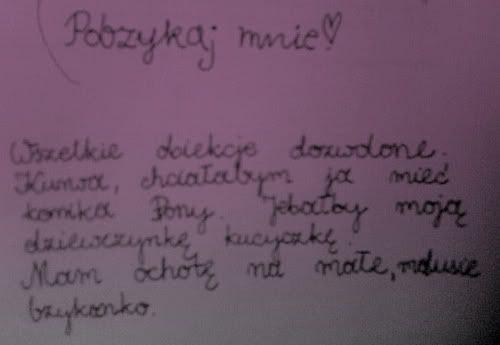 Pobzykaj mnie!♡
Wszelkie obiekcje dozwolone.
Kurwa, chciałabym ja mieć
konika Pony. Jebałby moją
dziewczynkę kucyczkę.
Mam ochotę na małe, malusie
bzykanko.